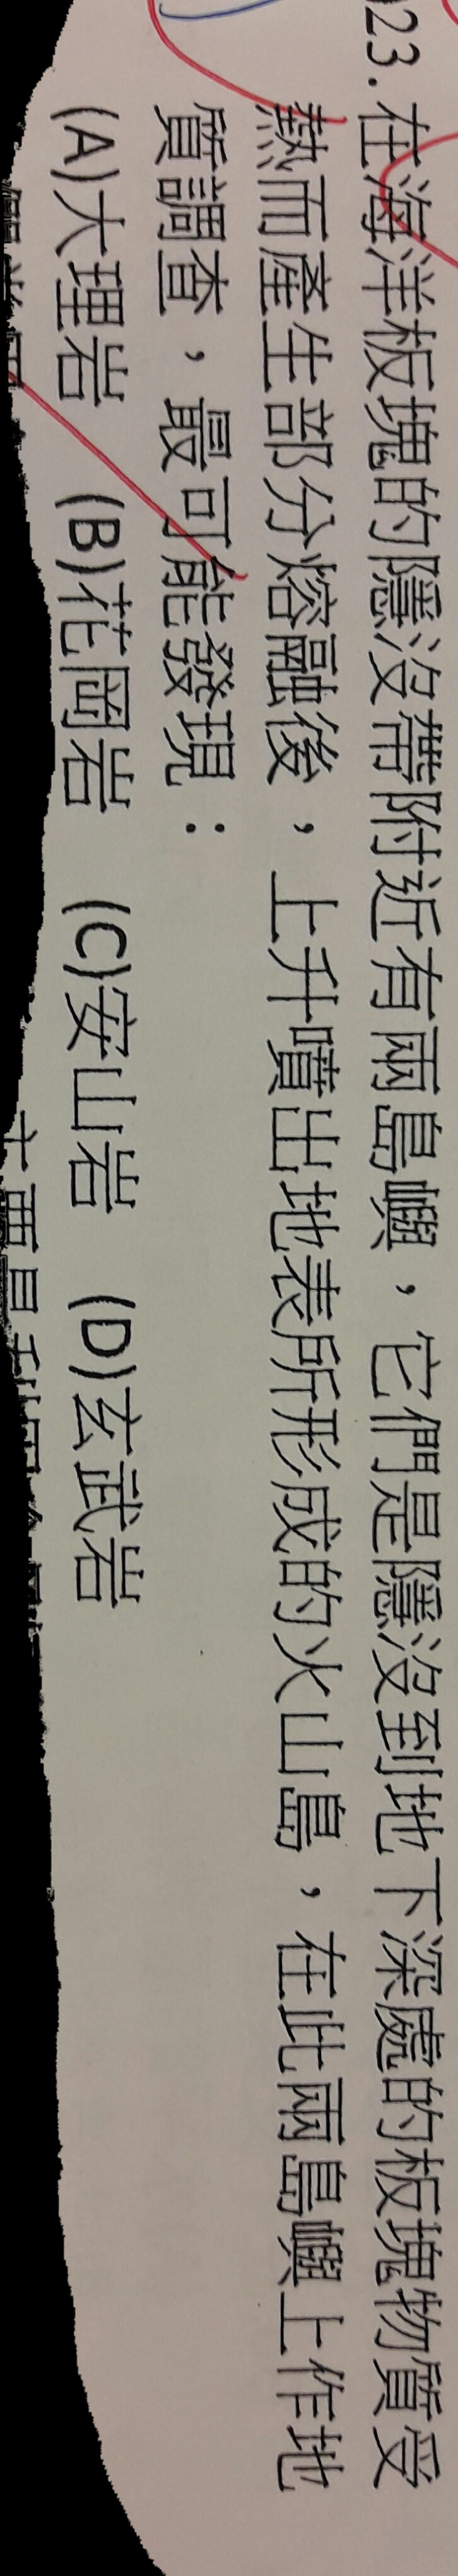 23.在海洋板塊的隱沒帶附近有兩島嶼，它們是隱沒到地下深處的板塊物質受
熱而產生部分熔融後，上升噴出地表所形成的火山島，在此兩島嶼上作地
質調查，最可能發現：
(A)大理岩 (B)花岡岩 (C)安山岩 (D)玄武岩